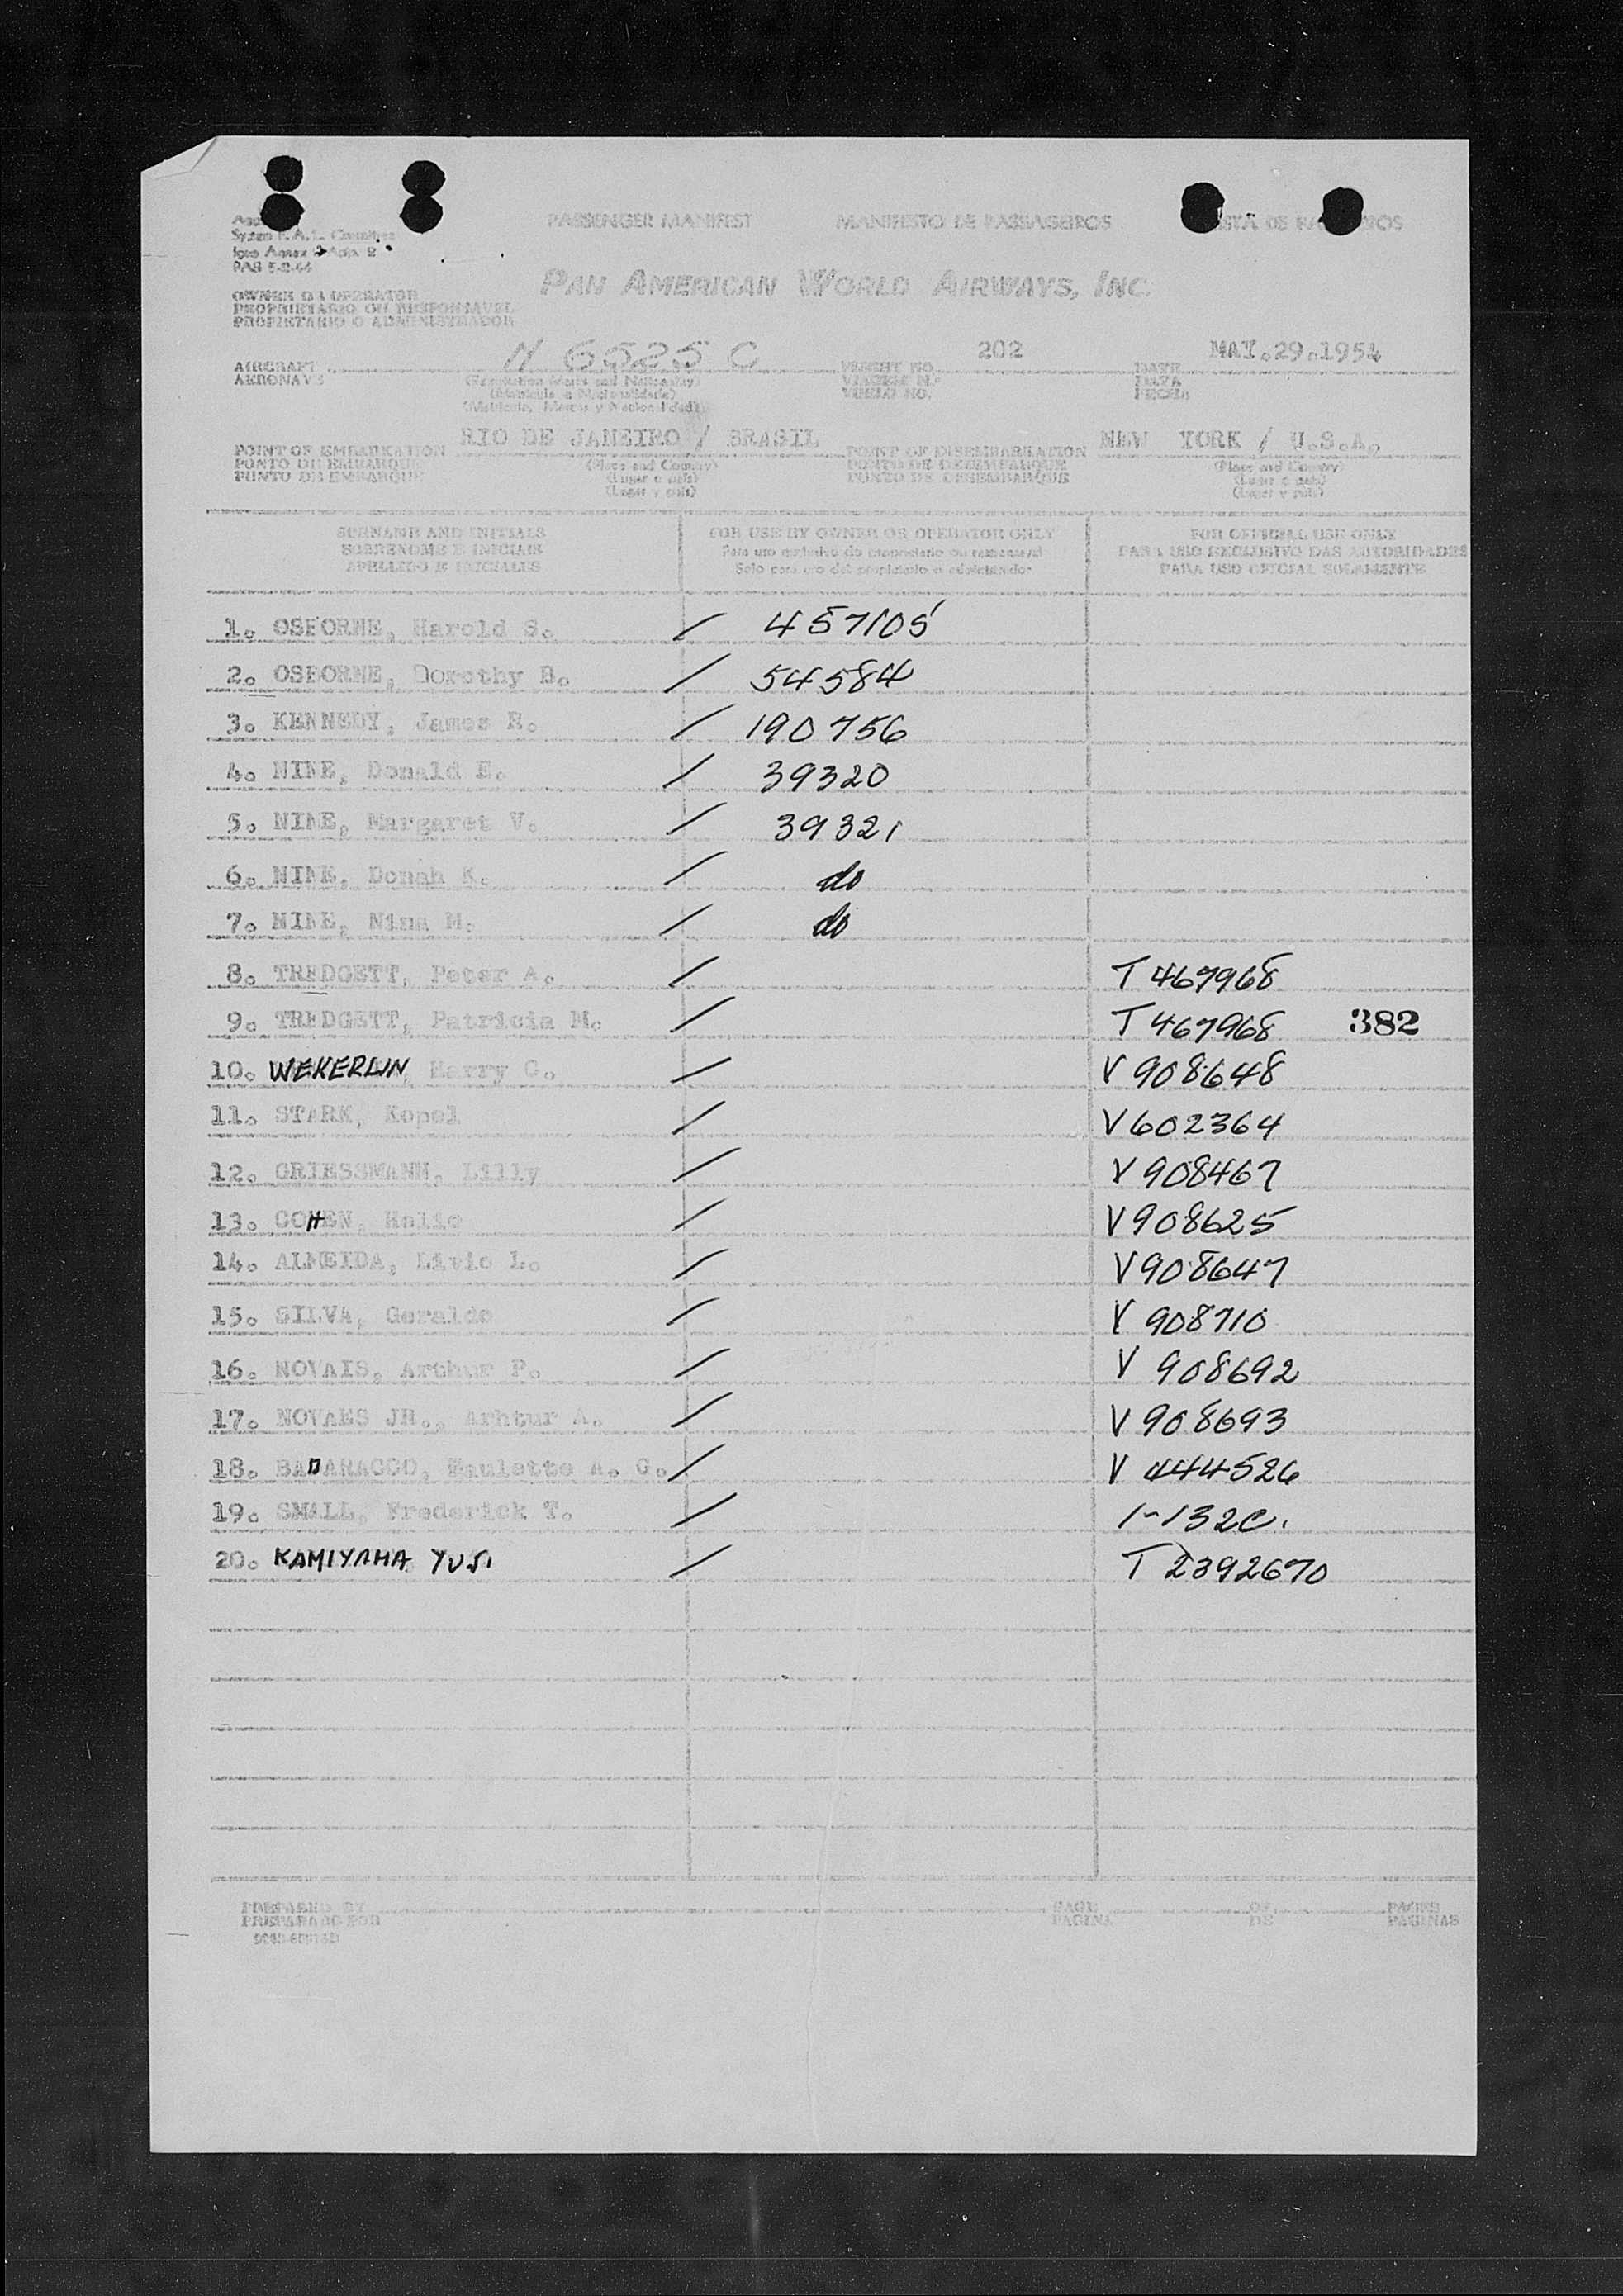 PASSENGER MANIFEST MANIFESTO DE PASSAGEIROS LISTA DE PASAJEROS
PAN AMERICAN WORLD AIRWAYS, INC.
OWNER OR OPERATOR
PROPRIETARIO OU RESPONSAVEL
PROPIETARIO O ADMINISTRADOR
AIRCRAFT N 6525 C FLIGHT NO. 202 DATE MAY.29.1954
AERONAVE (Registration Marks and Nationality) VIAGEM N.º DATA
(Matricula e Nacionalidade) VUELO NO. FECHA
(Matricula, Marcas y Nacionalidad)
POINT OF EMBARKATION RIO DE JANEIRO / BRASIL POINT OF DISEMBARKATION NEW YORK / U.S.A.
PONTO DE EMBARQUE (Place and Country) PONTO DE DESEMBARQUE (Place and Country)
PUNTO DE EMBARQUE (Lugar e país) PUNTO DE DESEMBARQUE (Lugar e país)
(Lugar y país) (Lugar y país)
SURNAME AND INITIALS FOR USE BY OWNER OR OPERATOR ONLY FOR OFFICIAL USE ONLY
SOBRENOME E INICIAIS Para uso exclusivo do proprietario ou responsavel PARA USO EXCLUSIVO DAS AUTORIDADES
APELLIDO E INICIALES Solo para uso del propietario o administrador PARA USO OFICIAL SOLAMENTE
1. OSBORNE, Harold S. / 457105
2. OSBORNE, Dorothy B. / 54584
3. KENNEDY, James R. / 190756
4. NINE, Donald E. / 39320
5. NINE, Margaret V. / 39321
6. NINE, Donah K. / do
7. NINE, Nina M. / do
8. TREDGETT, Peter A. / T 467968
9. TREDGETT, Patricia M. / T 467968 382
10. WEKERLIN, Harry G. / V 908648
11. STARK, Kopel / V602364
12. GRIESSMANN, Lilly / V 908467
13. COHEN, Halio / V908625
14. ALMEIDA, Livio L. / V908647
15. SILVA, Geraldo / V 908710
16. NOVAIS, Arthur P. / V 908692
17. NOVAES JR., Arhtur A. / V 908693
18. BADARACCO, Paulette A. G. / V 444526
19. SMALL, Frederick T. / 1-132C.
20. KAMIYAMA YUJI / T 2392670
PREPARED BY PAGE OF PAGES
PREPARADO POR PAGINA DE PAGINAS